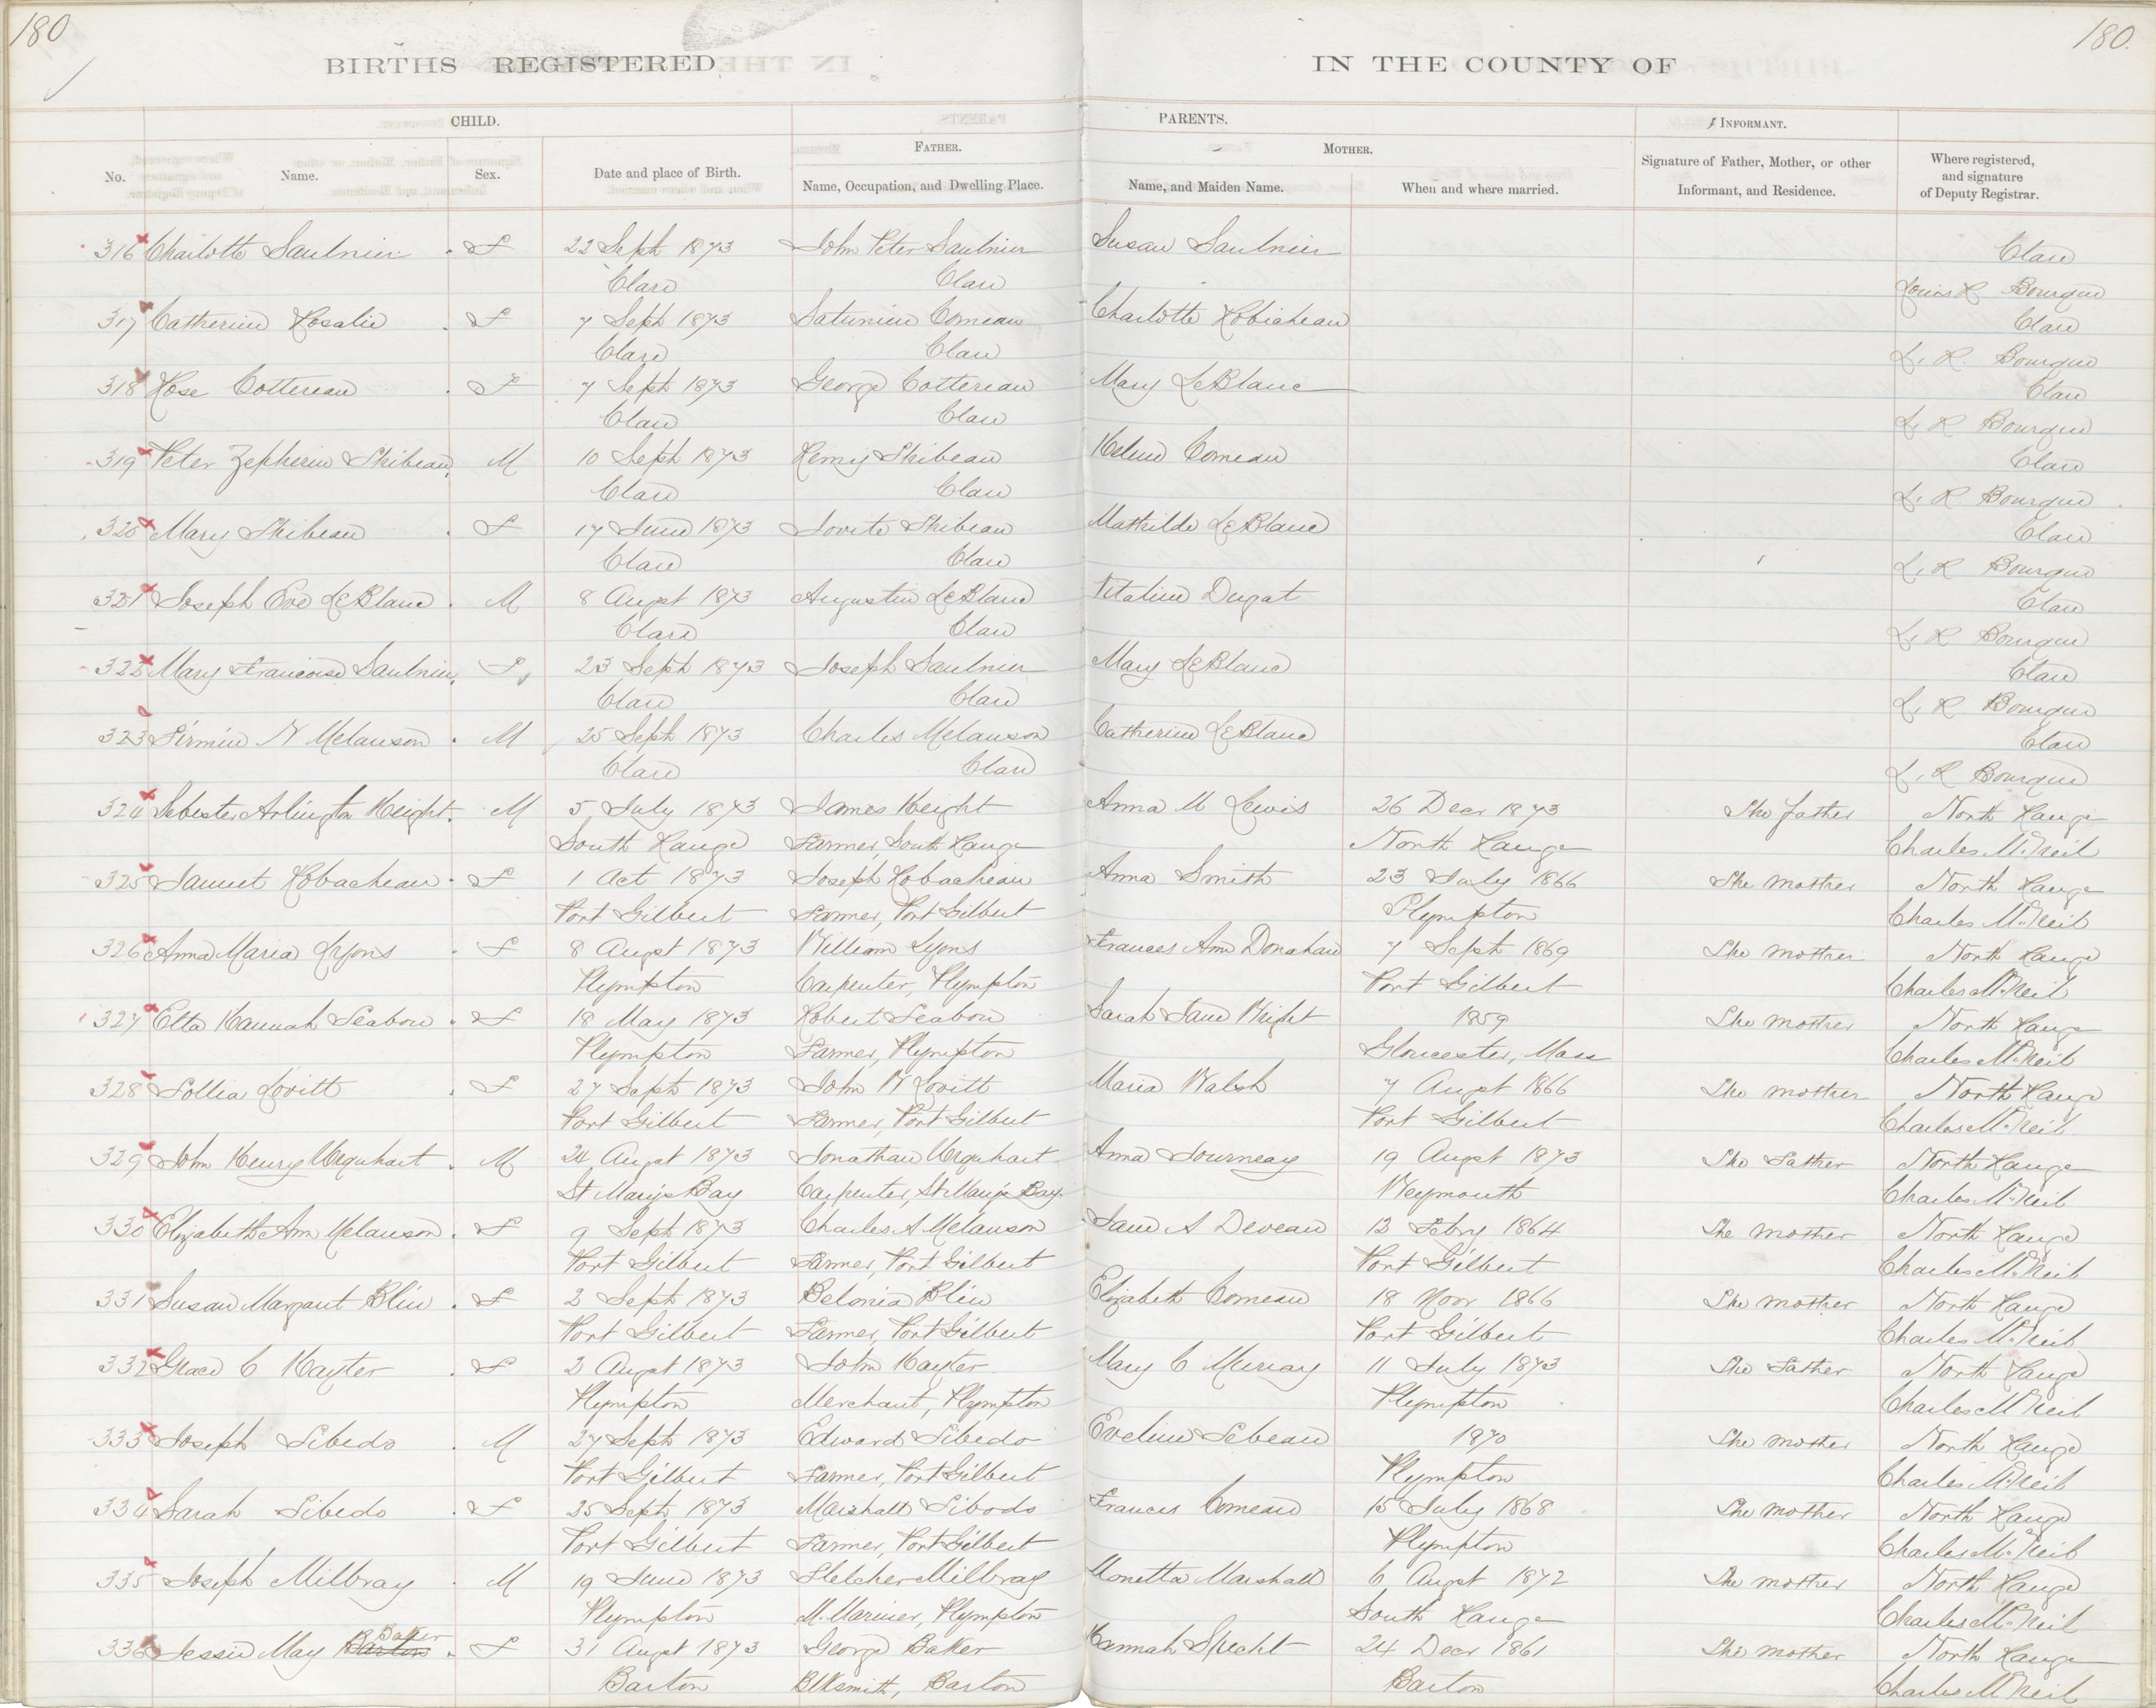 180
180.
BIRTHS REGISTERED
IN THE COUNTY OF
CHILD.
PARENTS.
INFORMANT.
FATHER.
MOTHER.
No.
Name.
Sex.
Date and place of Birth.
Name, Occupation, and Dwelling Place.
Name, and Maiden Name.
When and where married.
Signature of Father, Mother, or other
Informant, and Residence.
Where registered,
and signature
of Deputy Registrar.
316 Charlotte Saulnier F 22 Sept 1873 John Peter Saulnier Susan Saulnier Clare
Clare Clare Louis R Bourque
317 Catherine Rosalie F 7 Sept 1873 Saturnin Comeau Charlotte Robicheau Clare
Clare Clare L. R. Bourque
318 Rose Cottereau F 7 Sept 1873 George Cottereau Mary LeBlanc Clare
Clare Clare L. R Bourque
319 Peter Zepherin Thibeau M 10 Sept 1873 Remy Thibeau Helene Comeau Clare
Clare Clare L. R Bourque
320 Mary Thibeau F 17 June 1873 Jovite Thibeau Mathilde LeBlanc Clare
Clare Clare L. R Bourque
321 Joseph Eve LeBlanc M 8 Augst 1873 Augustin LeBlanc Vitaline Dugat Clare
Clare Clare L. R Bourque
322 Mary Francoise Saulnier F 23 Sept 1873 Joseph Saulnier Mary LeBlanc Clare
Clare Clare L. R Bourque
323 Firmin N Melanson M 25 Sept 1873 Charles Melanson Catherine LeBlanc Clare
Clare Clare L. R Bourque
324 Sebester Arlington Height M 5 July 1873 James Height Anna M Lewis 26 Decr 1873 The father North Range
South Range Farmer, South Range North Range Charles McNeil
325 Jannet Robacheau F 1 Oct 1873 Joseph Robacheau Anna Smith 23 July 1866 The mother North Range
Port Gilbert Farmer, Port Gilbert Plympton Charles McNeil
326 Anna Maria Lyons F 8 Augst 1873 William Lyons Frances Ann Donahue 7 Sept 1869 The mother North Range
Plympton Carpenter, Plympton Port Gilbert Charles McNeil
327 Etta Hannah Seabon F 18 May 1873 Robert Seabon Sarah Jane Wright 1859 The mother North Range
Plympton Farmer, Plympton Gloucester, Mass Charles McNeil
328 Lollia Lovitt F 27 Sept 1873 John W Lovitt Maria Walsh 7 Augst 1866 The mother North Range
Port Gilbert Farmer, Port Gilbert Port Gilbert Charles McNeil
329 John Henry Urquhart M 24 Augst 1873 Jonathan Urquhart Anna Journeay 19 Augst 1873 The Father North Range
St Marys Bay Carpenter, St Marys Bay Weymouth Charles McNeil
330 Elizabeth Ann Melanson F 9 Sept 1873 Charles A Melanson Jane A Deveau 13 Febry 1864 The mother North Range
Port Gilbert Farmer, Port Gilbert Port Gilbert Charles McNeil
331 Susan Margaret Blin F 2 Sept 1873 Belonia Blin Elizabeth Comeau 18 Novr 1866 The mother North Range
Port Gilbert Farmer, Port Gilbert Port Gilbert Charles McNeil
332 Grace C Hayter F 2 Augst 1873 John Hayter Mary C Murray 11 July 1873 The Father North Range
Plympton Merchant, Plympton Plympton Charles McNeil
333 Joseph Sibedo M 27 Sept 1873 Edward Sibedo Eveline Lebeau 1870 The mother North Range
Port Gilbert Farmer, Port Gilbert Plympton Charles McNeil
334 Sarah Sibedo F 25 Sept 1873 Marshall Sibodo Frances Comeau 15 July 1868 The mother North Range
Port Gilbert Farmer, Port Gilbert Plympton Charles McNeil
335 Joseph Milbray M 19 June 1873 Fletcher Milbray Monetta Marshall 6 Augst 1872 The mother North Range
Plympton M. Mariner, Plympton South Range Charles McNeil
336 Jessie May Barton Baker F 31 Augst 1873 George Baker Hannah Specht 24 Decr 1861 The mother North Range
Barton Blksmith, Barton Barton Charles McNeil